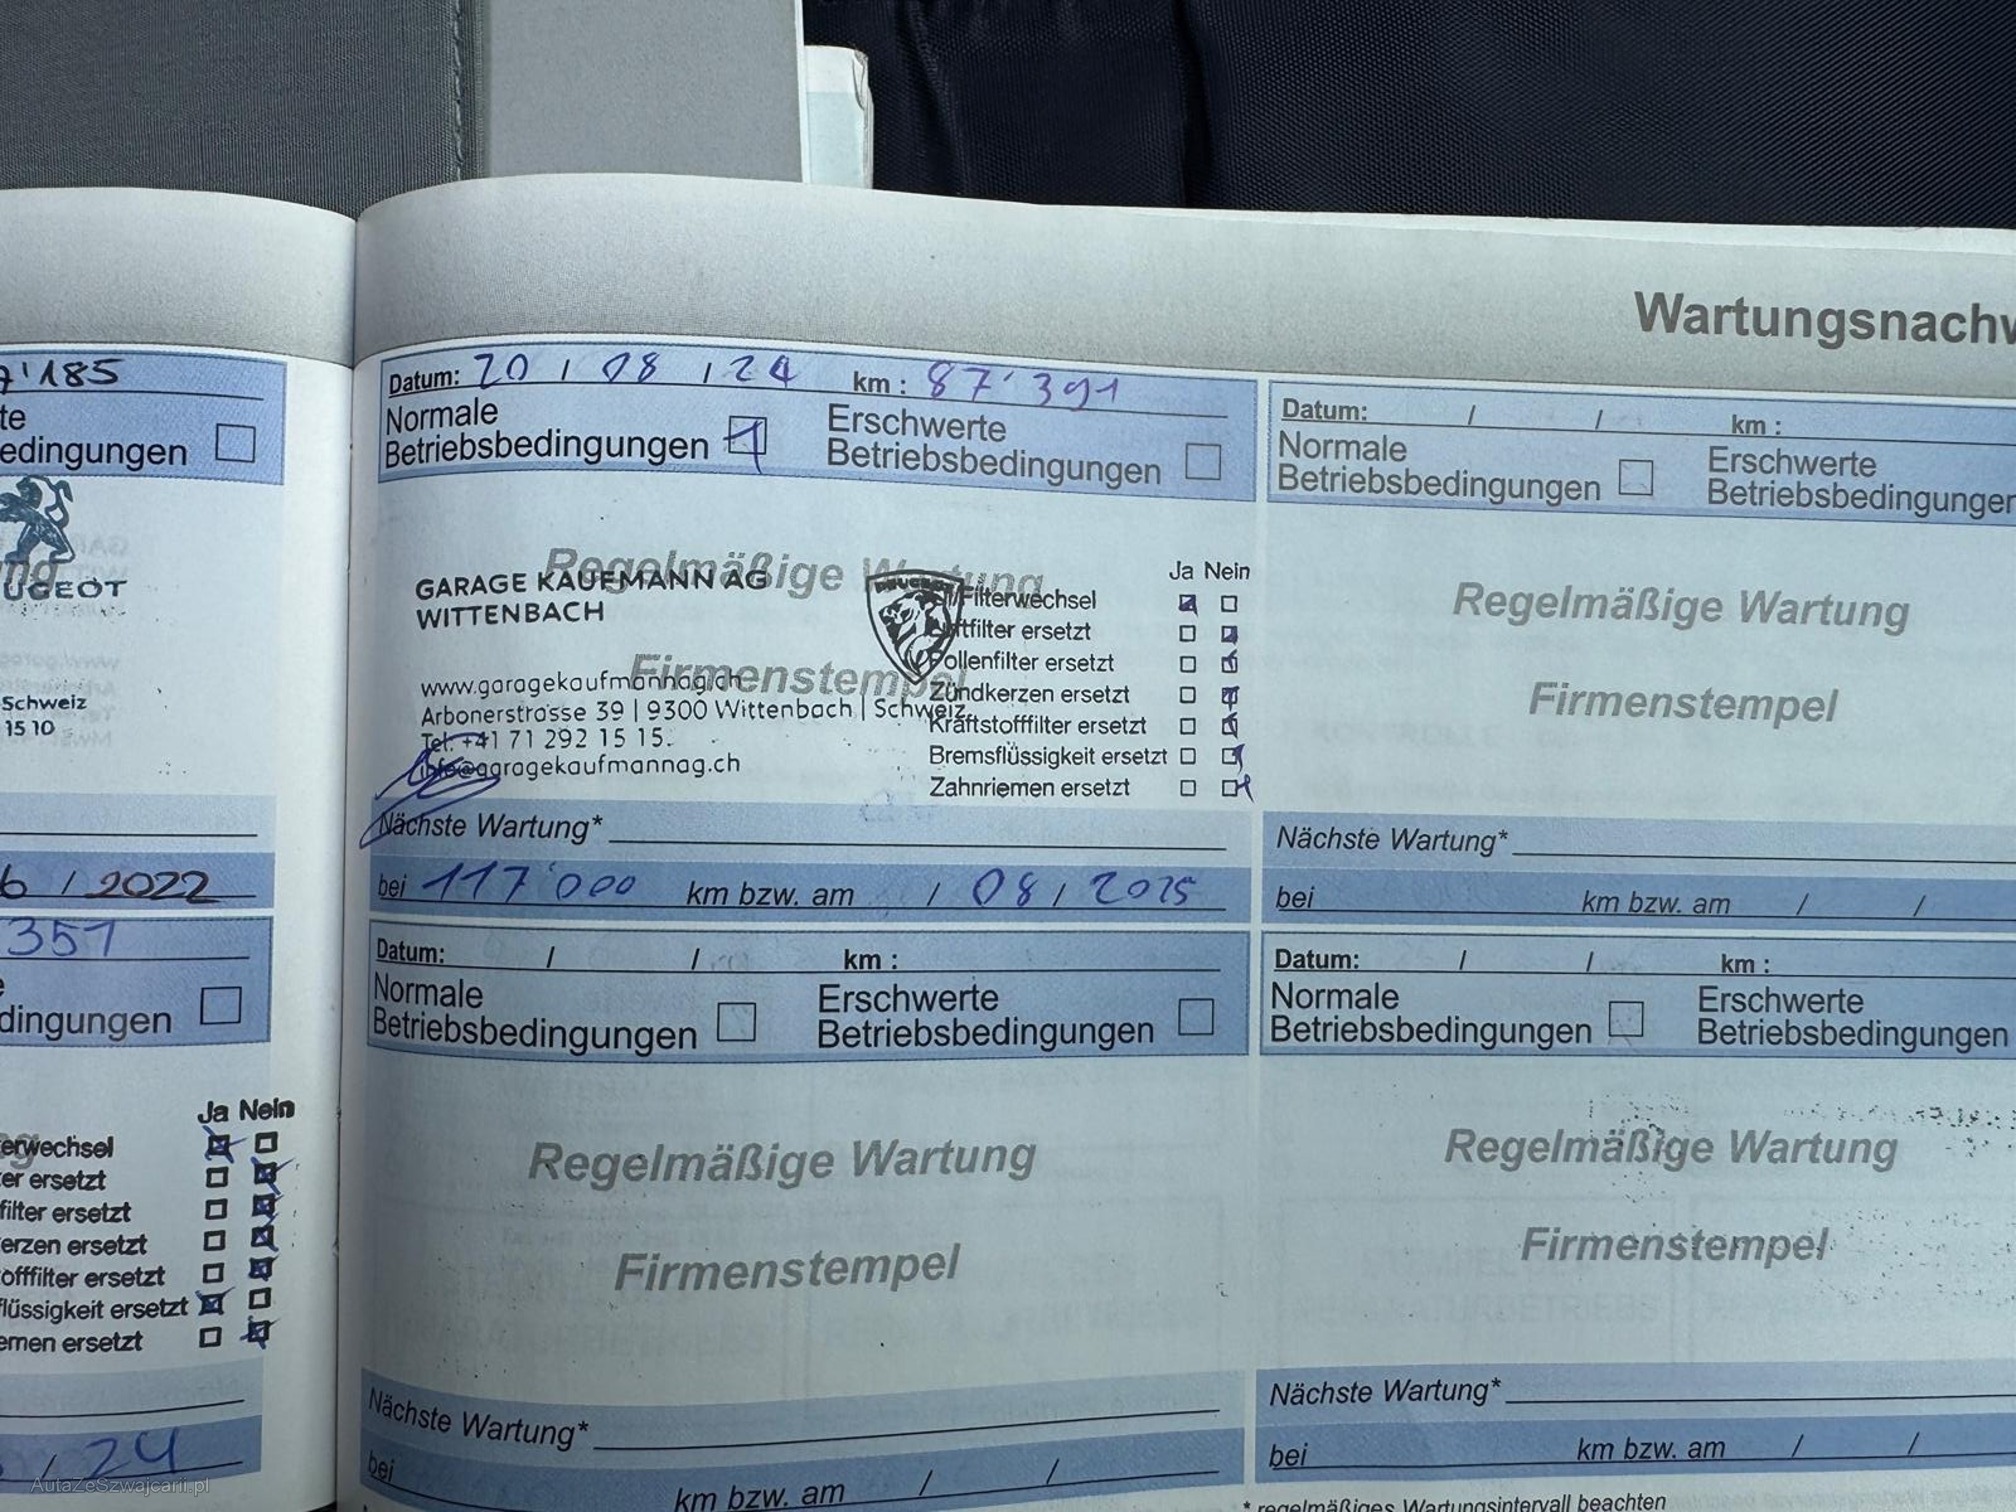 Wartungsnachw
7'185
te
edingungen
UGEOT
Schweiz
15 10
6 / 2022
351
dingungen
Ja Nein
erwechsel
er ersetzt
filter ersetzt
erzen ersetzt
offfilter ersetzt
flüssigkeit ersetzt
emen ersetzt
/ 24
Datum: 20 / 08 / 24 km : 87'391
Normale
Betriebsbedingungen
Erschwerte
Betriebsbedingungen
Regelmäßige Wartung
GARAGE KAUFMANN AG
WITTENBACH
PEUGEOT
Firmenstempel
www.garagekaufmannag.ch
Arbonerstrasse 39 | 9300 Wittenbach | Schweiz
Tel. +41 71 292 15 15
info@garagekaufmannag.ch
Ja Nein
Öl/Filterwechsel
Luftfilter ersetzt
Pollenfilter ersetzt
Zündkerzen ersetzt
Kraftstofffilter ersetzt
Bremsflüssigkeit ersetzt
Zahnriemen ersetzt
Nächste Wartung*
bei 117'000 km bzw. am / 08 / 2025
Datum: / / km :
Normale
Betriebsbedingungen
Erschwerte
Betriebsbedingungen
Regelmäßige Wartung
Firmenstempel
Nächste Wartung*
bei km bzw. am / /
Datum: / / km :
Normale
Betriebsbedingungen
Erschwerte
Betriebsbedingungen
Regelmäßige Wartung
Firmenstempel
Nächste Wartung*
bei km bzw. am / /
Datum: / / km :
Normale
Betriebsbedingungen
Erschwerte
Betriebsbedingungen
Regelmäßige Wartung
Firmenstempel
Nächste Wartung*
bei km bzw. am / /
* regelmäßiges Wartungsintervall beachten
AutaZeSzwajcarii.pl